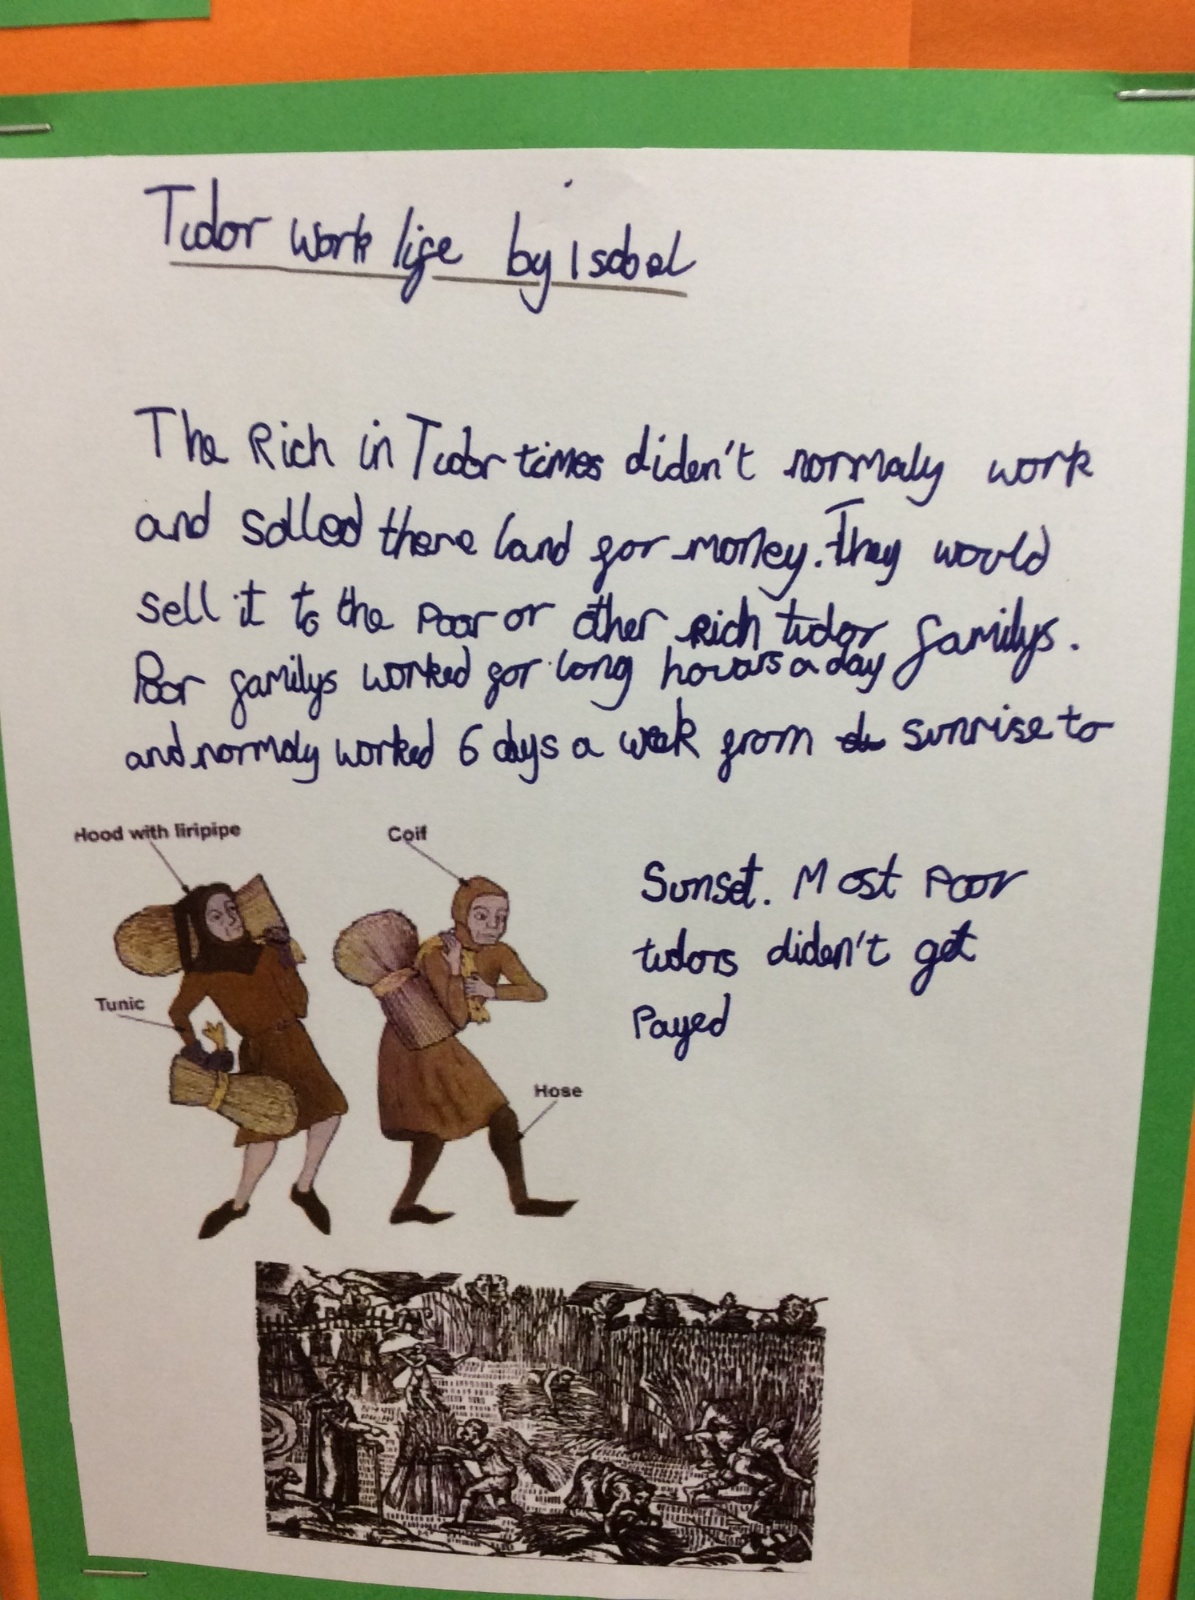 Tudor work life by Isobel
The Rich in Tudor times diden't normaly work
and solled there land for money. They would
sell it to the Poor or other Rich tudor familys.
Poor familys worked for long houars a day
and normaly worked 6 days a week from sunrise to
Hood with liripipe
Coif
Tunic
Hose
Sunset. Most Poor
tudors diden't get
Payed